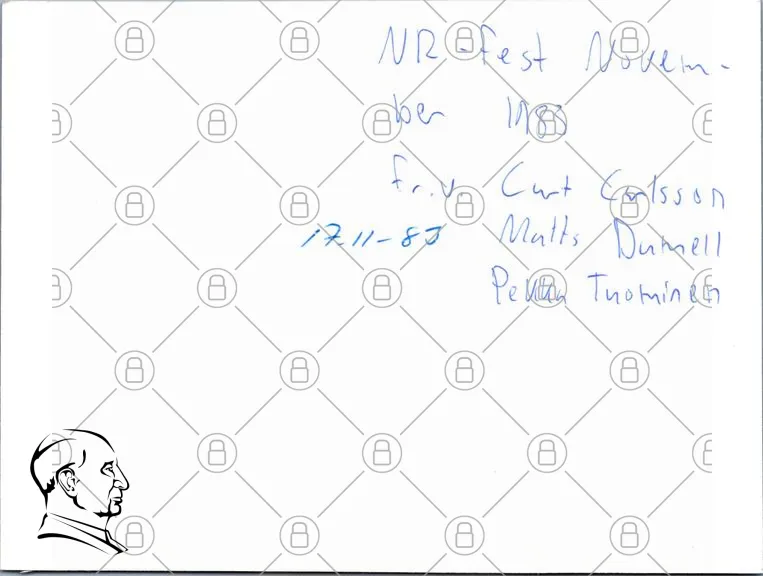 NR-fest Novem-
ber 1983
fr.v. Curt Carlsson
17.11-83 Matts Dumell
Pekka Tuominen